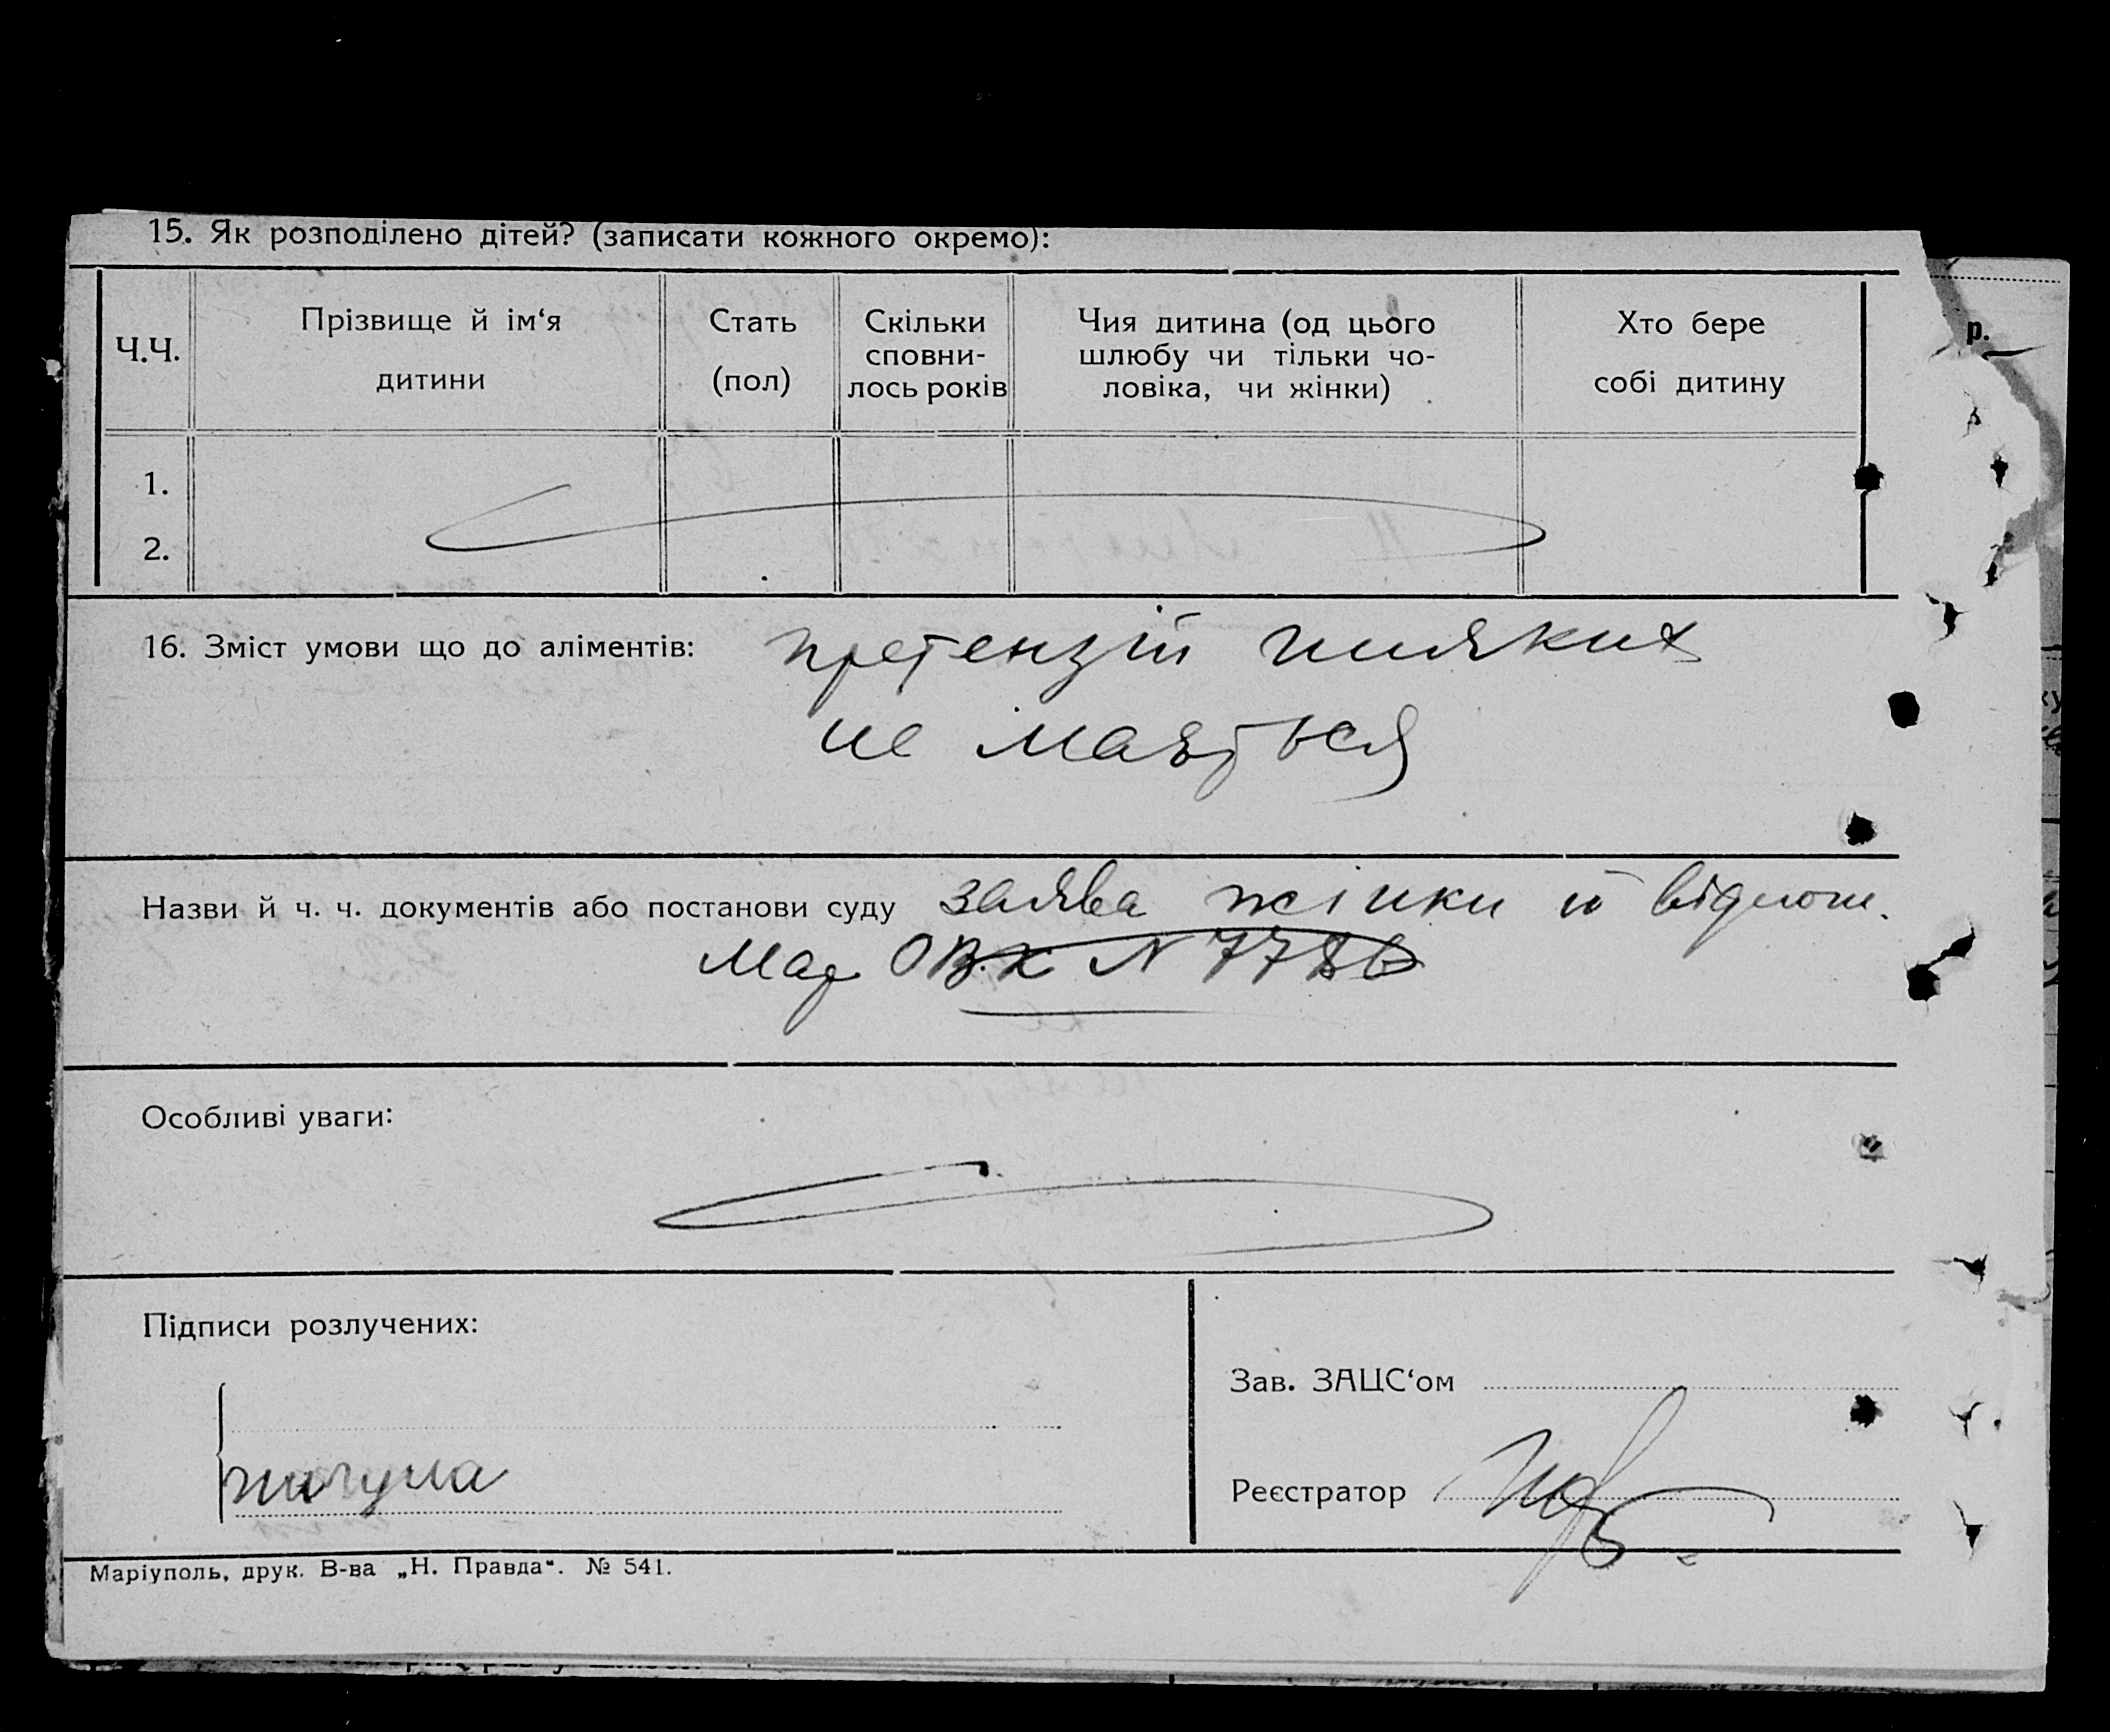 15. Як розподілено дітей? (записати кожного окремо):
Ч.Ч.
Прізвище й ім‘я
дитини
Стать
(пол)
Скільки
сповни-
лось років
Чия дитина (од цього
шлюбу чи тільки чо-
ловіка, чи жінки)
Хто бере
собі дитину
р.
1.
2.
16. Зміст умови що до аліментів: претензій нияких
не мається
Назви й ч. ч. документів або постанови суду заява жінки й віднош.
Мар ОВК N 7786
Особливі уваги:
Підписи розлучених:
Зав. ЗАЦС‘ом
Реєстратор
Маріуполь, друк. В-ва „Н. Правда“. № 541.